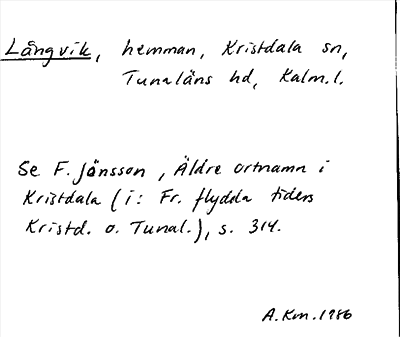 Långvik, hemman, Kristdala sn,
Tunaläns hd, Kalm.l.
Se F. Jönsson, Äldre ortnamn i
Kristdala (i: Fr. flydda tiders
Kristd. o. Tunal.), s. 314.
A.Km.1986